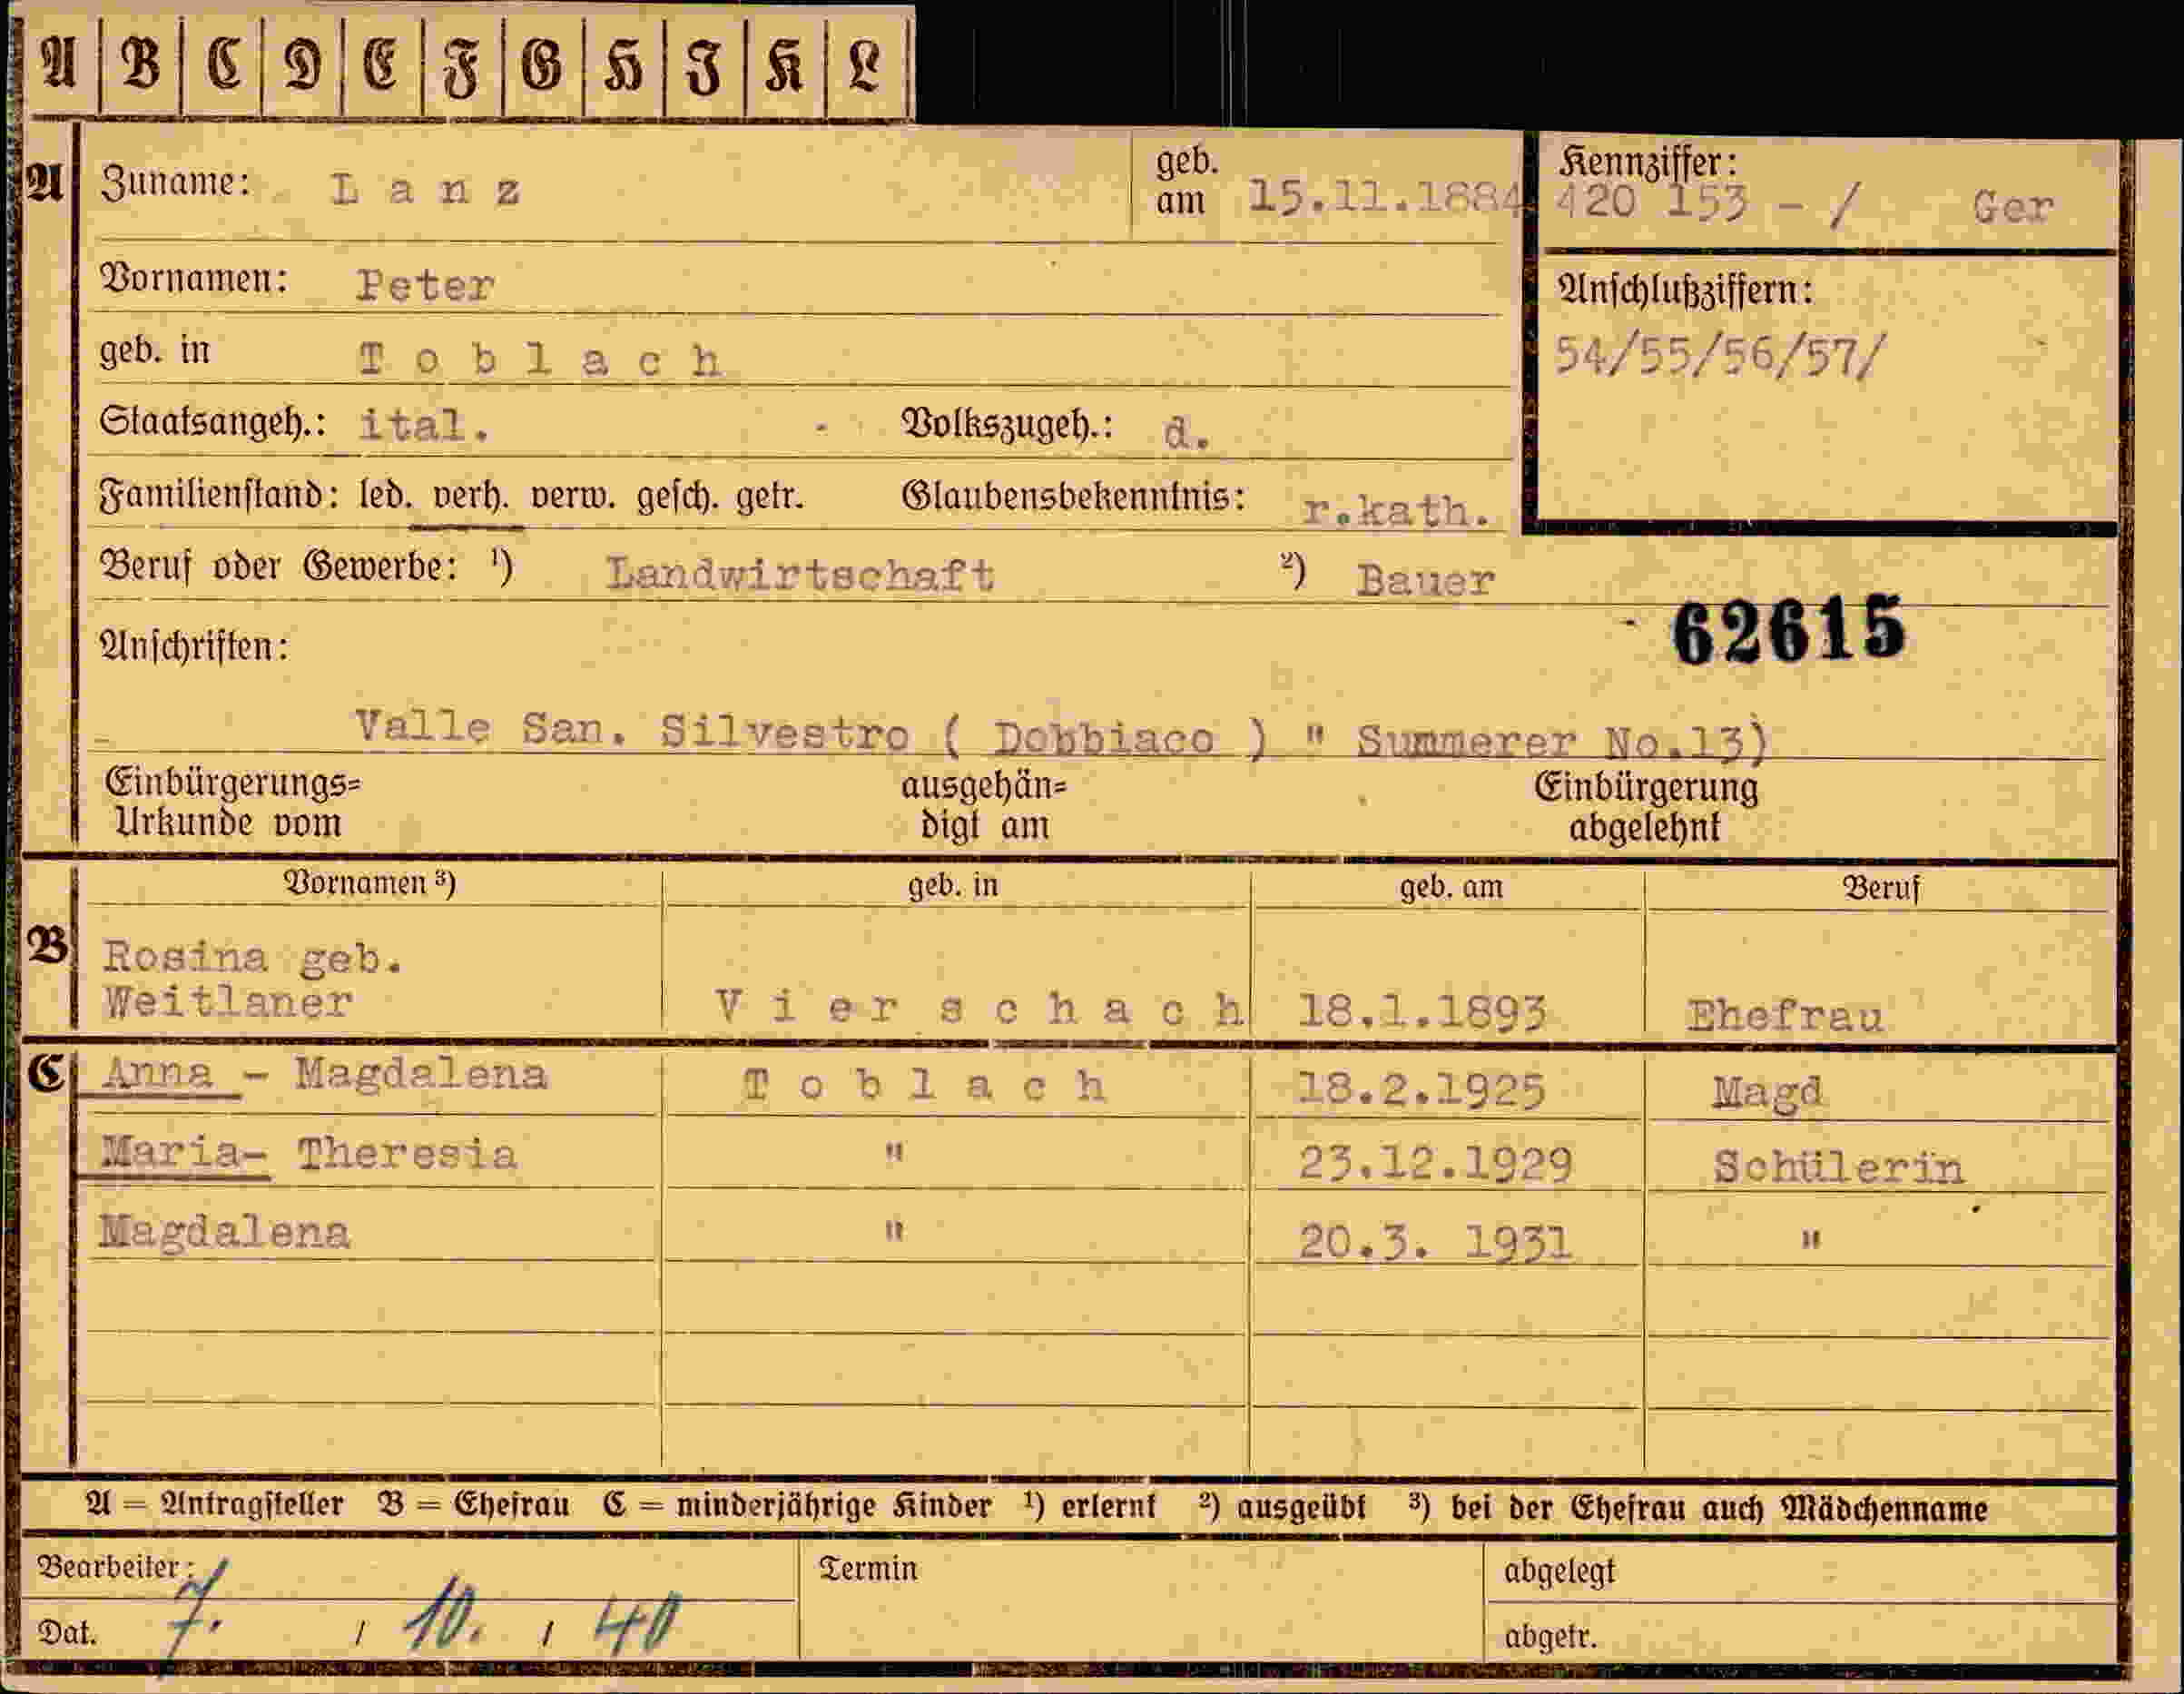 A B C D E F G H I K L
A Zuname: L a n z geb. am 15.11.1884 Kennziffer: 420 153 - / Ger
Vornamen: Peter
geb. in T o b l a c h Anschlußziffern: 54/55/56/57/
Staatsangeh.: ital. Volkszugeh.: d.
Familienstand: led. verh. verw. gesch. getr. Glaubensbekenntnis: r.kath.
Beruf oder Gewerbe: ¹) Landwirtschaft ²) Bauer
Anschriften: 62615
Valle San. Silvestro ( Dobbiaco ) " Summerer No.13)
Einbürgerungs= ausgehän= Einbürgerung
Urkunde vom digt am abgelehnt
Vornamen ³) geb. in geb. am Beruf
B Rosina geb.
Weitlaner V i e r s c h a c h 18.1.1893 Ehefrau
C Anna - Magdalena T o b l a c h 18.2.1925 Magd
Maria- Theresia " 23.12.1929 Schülerin
Magdalena " 20.3. 1931 "
A = Antragsteller B = Ehefrau C = minderjährige Kinder ¹) erlernt ²) ausgeübt ³) bei der Ehefrau auch Mädchenname
Bearbeiter: Termin abgelegt
Dat. 7. / 10. / 40 abgetr.